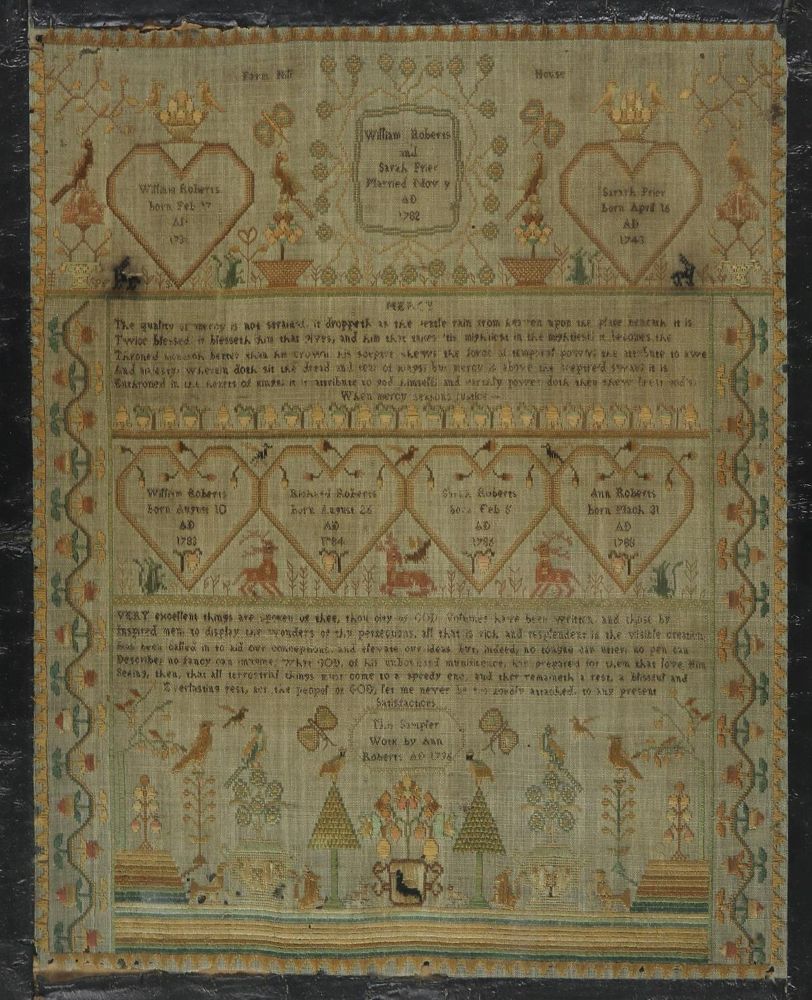 Farm Hill House
William Roberts
and
Sarah Prier
Married Nov 9
AD
1782
William Roberts
born Feb 17
AD
Sarah Prier
born April 16
AD
1743
MERCY
The quality of mercy is not strain'd, it droppeth as the gentle rain from heaven upon the place beneath it is
Twice blessed it blesseth him that gives, and him that takes 'tis mightiest in the mightiest it becomes the
Throned monarch better than his crown his scepter shews the force of temporal power the attribute to awe
And majesty wherein doth sit the dread and fear of kings but mercy is above the scepter'd sway it is
Enthroned in the hearts of kings it is attribute to god himself and earthly power doth then shew
When mercy seasons justice
William Roberts
born August 10
AD
1783
Richard Roberts
born August 26
AD
1784
Sarah Roberts
born Feb 8
AD
1786
Ann Roberts
born March 31
AD
1788
VERY excellent things are spoken of thee, thou city of GOD Volumes have been written and those by
Inspired men to display the wonders of thy perfections, all that is rich and resplendent in the visible creation,
has been called in to aid our conceptions, and elevate our ideas but, indeed, no tongue can utter, no pen can
Describe, no fancy can imagine, what GOD, of his unbounded munificence, has prepared for them that love Him
Seeing, then, that all terrestrial things must come to a speedy end, and ther remaineth a rest, a blissful and
Everlasting rest, for the peopel of GOD, let me never be too fondly attached, to any present
Satisfactions
This Sampler
Work by Ann
Roberts AD 1796